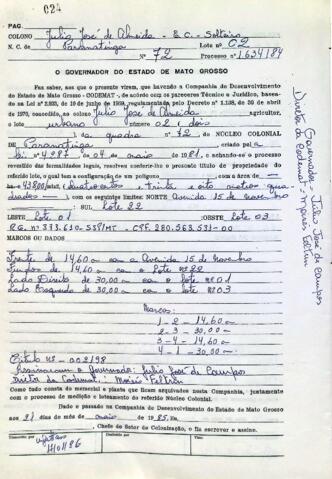 024
PAG.
COLONO Julio José de Almeida - E.C. - Solteiro
Lote nº 02
N. C. de Paranatinga nº 72 Processo nº 1.634/84
O GOVERNADOR DO ESTADO DE MATO GROSSO
Faz saber, aos que o presente virem, que havendo a Companhia de Desenvolvimento
do Estado de Mato Grosso - CODEMAT -, de acordo com os pareceres Técnico e Jurídico, basea-
do na Lei nº 2.933, de 19 de junho de 1969, regulamentada pelo Decreto nº 1.138, de 30 de abril
de 1970, concedido ao colono Julio José de Almeida agricultor,
o lote urbano número 02 (dois)
da quadra nº 72 DO NÚCLEO COLONIAL
DE Paranatinga, criado pela
Lei nº 4287 de 04 de maio de 1981, e achando-se o processo
revestido das formalidades legais, resolveu conferir-lhe o presente título de propriedade do
referido lote, o qual tem a configuração de um polígono com a área de
438,00 m² (quatrocentos e trinta e oito metros qua
drados) com os seguintes limites: NORTE Avenida 15 de novembro
SUL Lote 22
LESTE Lote 01 OESTE Lote 03
R.G. nº 373.610-SSP/MT - CPF. 280.563.531-00
MARCOS OU DADOS
Frente de 14,60 m com a Avenida 15 de Novembro
Fundos de 14,60 m com o lote nº 22
Lado Direito de 30,00 m com o lote nº 01
Lado Esquerdo de 30,00 m com o lote nº 03
Marcos:
1 - 2 - 14,60 m
2 - 3 - 30,00 m
3 - 4 - 14,60 m
4 - 1 - 30,00 m
Título nº - 002198
Assinaram o Governador: Julio José de Campos
Diretor da Codemat: Moisés Feltrin
Tudo consta do memorial e planta que ficam arquivados nesta Companhia, juntamente
com o processo de medição e loteamento do referido Núcleo Colonial.
Dado e passado na Companhia de Desenvolvimento do Estado de Mato Grosso
aos 21 dias do mês de maio de 1985. Eu,
Chefe do Setor de Colonização, o fiz escrever e assino.
14/01/86
Governador - Julio José de Campos
Diretor da Codemat - Moisés Feltrin